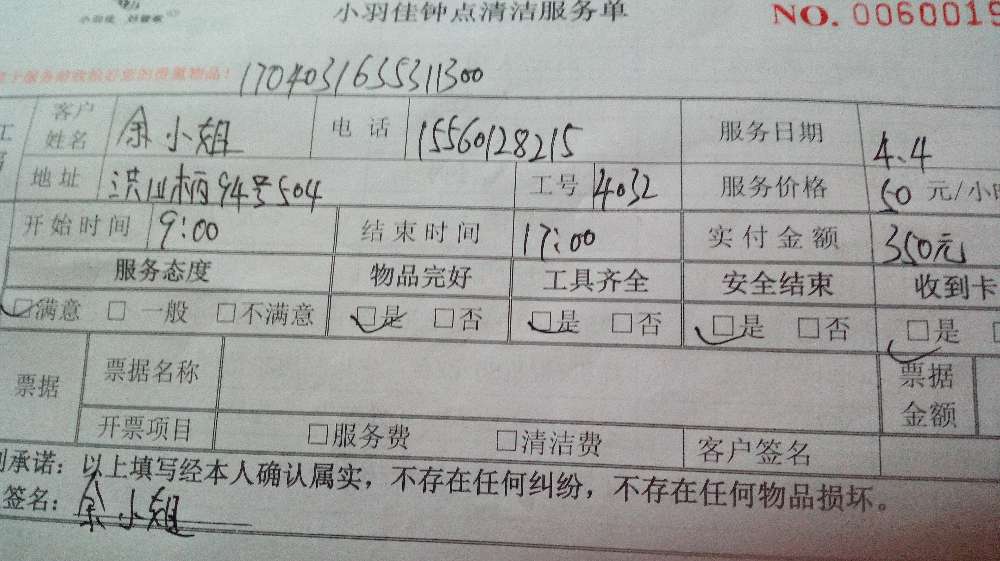 小羽佳钟点清洁服务单 NO. 0060019
17040316355311300
客户姓名 余小姐 电话 15560128215 服务日期 4.4
地址 洪山柄94号504 工号 4032 服务价格 50 元/小
开始时间 9:00 结束时间 17:00 实付金额 350元
服务态度 物品完好 工具齐全 安全结束 收到卡
□满意 □一般 □不满意 □是 □否 □是 □否 □是 □否 □是
票据 票据名称 票据金额
开票项目 □服务费 □清洁费 客户签名
承诺：以上填写经本人确认属实，不存在任何纠纷，不存在任何物品损坏。
签名：余小姐